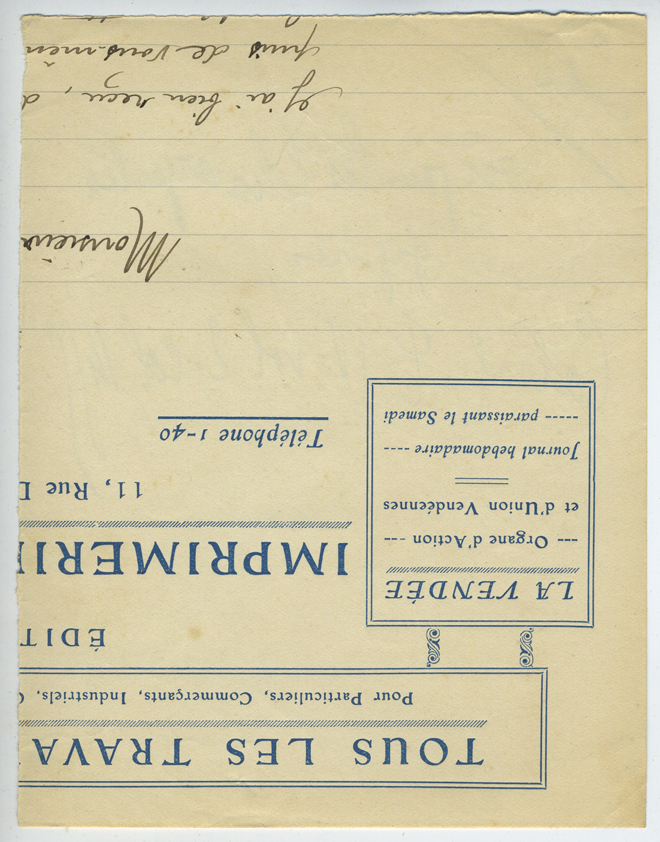 TOUS LES TRAVA
Pour Particuliers, Commerçants, Industriels,
LA VENDÉE
--- Organe d'Action ---
et d'Union Vendéennes
Journal hebdomadaire ----
----- paraissant le Samedi
ÉDIT
IMPRIMERI
11, Rue D
Téléphone 1-40
Monsieur
J'ai bien reçu, d
puis de vous-mêm